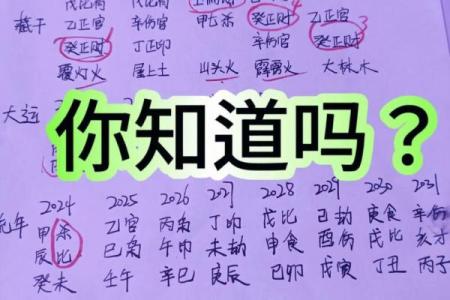 藏干 甲七杀 癸正财 乙正官
癸正财 丁正印 辛伤官 癸正财
覆灯火 屋上土 山头火 霹雳火 大林木
大运
你知道吗？
2024 2025 2026 2027 2028 2029 2030 2031
流年 甲杀 乙官 丙枭 丁印 戊比 己劫 庚食 辛伤
辰比 巳枭 午印 未劫 申食 酉伤 戌比 亥才
癸未 壬午 辛巳 庚辰 己卯 戊寅 丁丑 丙子